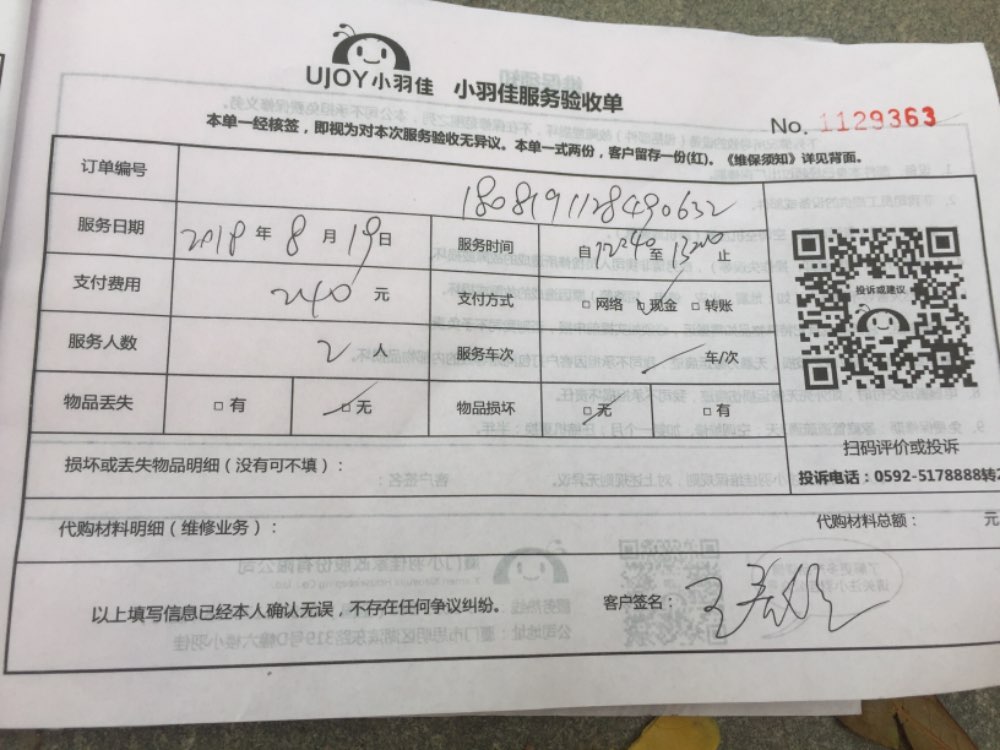 UJOY小羽佳 小羽佳服务验收单
No. 1129363
本单一经核签，即视为对本次服务验收无异议。本单一式两份，客户留存一份(红)。《维保须知》详见背面。
订单编号 180819112849063​2
服务日期 2018年8月19日 服务时间 自12:40至13:20止
支付费用 240元 支付方式 □网络 □现金 □转账
服务人数 2人 服务车次 车/次
物品丢失 □有 □无 物品损坏 □无 □有
投诉或建议
扫码评价或投诉
投诉电话：0592-5178888转2
损坏或丢失物品明细（没有可不填）：
代购材料明细（维修业务）： 代购材料总额： 元
以上填写信息已经本人确认无误，不存在任何争议纠纷。 客户签名：